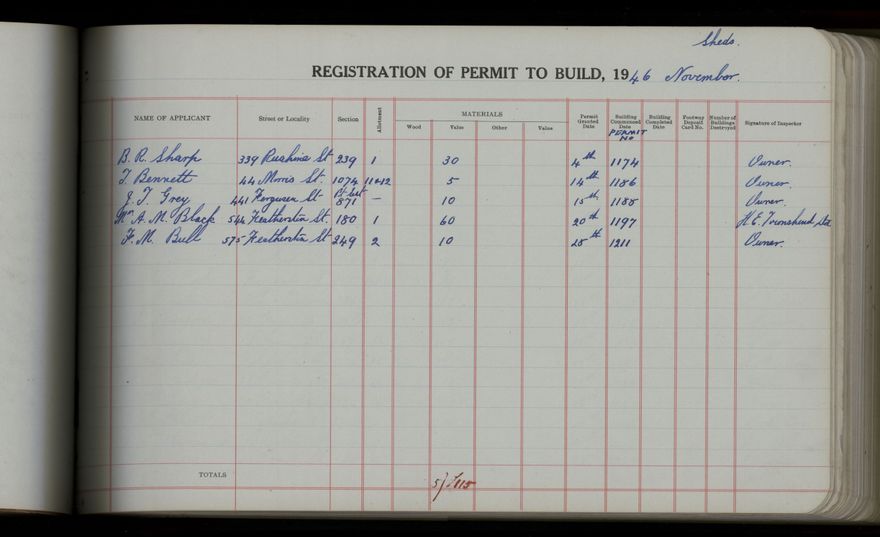 Sheds.
REGISTRATION OF PERMIT TO BUILD, 1946 November.
NAME OF APPLICANT Street or Locality Section Allotment MATERIALS Wood Value Other Value Permit Granted Date Building Commenced Date PERMIT NO Building Completed Date Footway Deposit Card No. Number of Buildings Destroyed Signature of Inspector
B. R. Sharp 339 St 239 1 30 4th 1174 Owner.
T. Bennett 44 Morris St. 1074 11+12 5 14th 1186 Owner.
J. T. Grey 441 Ferguson St 871 — 10 15th 1188 Owner.
A. M. Black 544 Featherston St 180 1 60 20th 1197 H. E. Townshend Ltd
F. M. Bull 575 Featherston St 249 2 10 28th 1211 Owner.
TOTALS 5/ £115